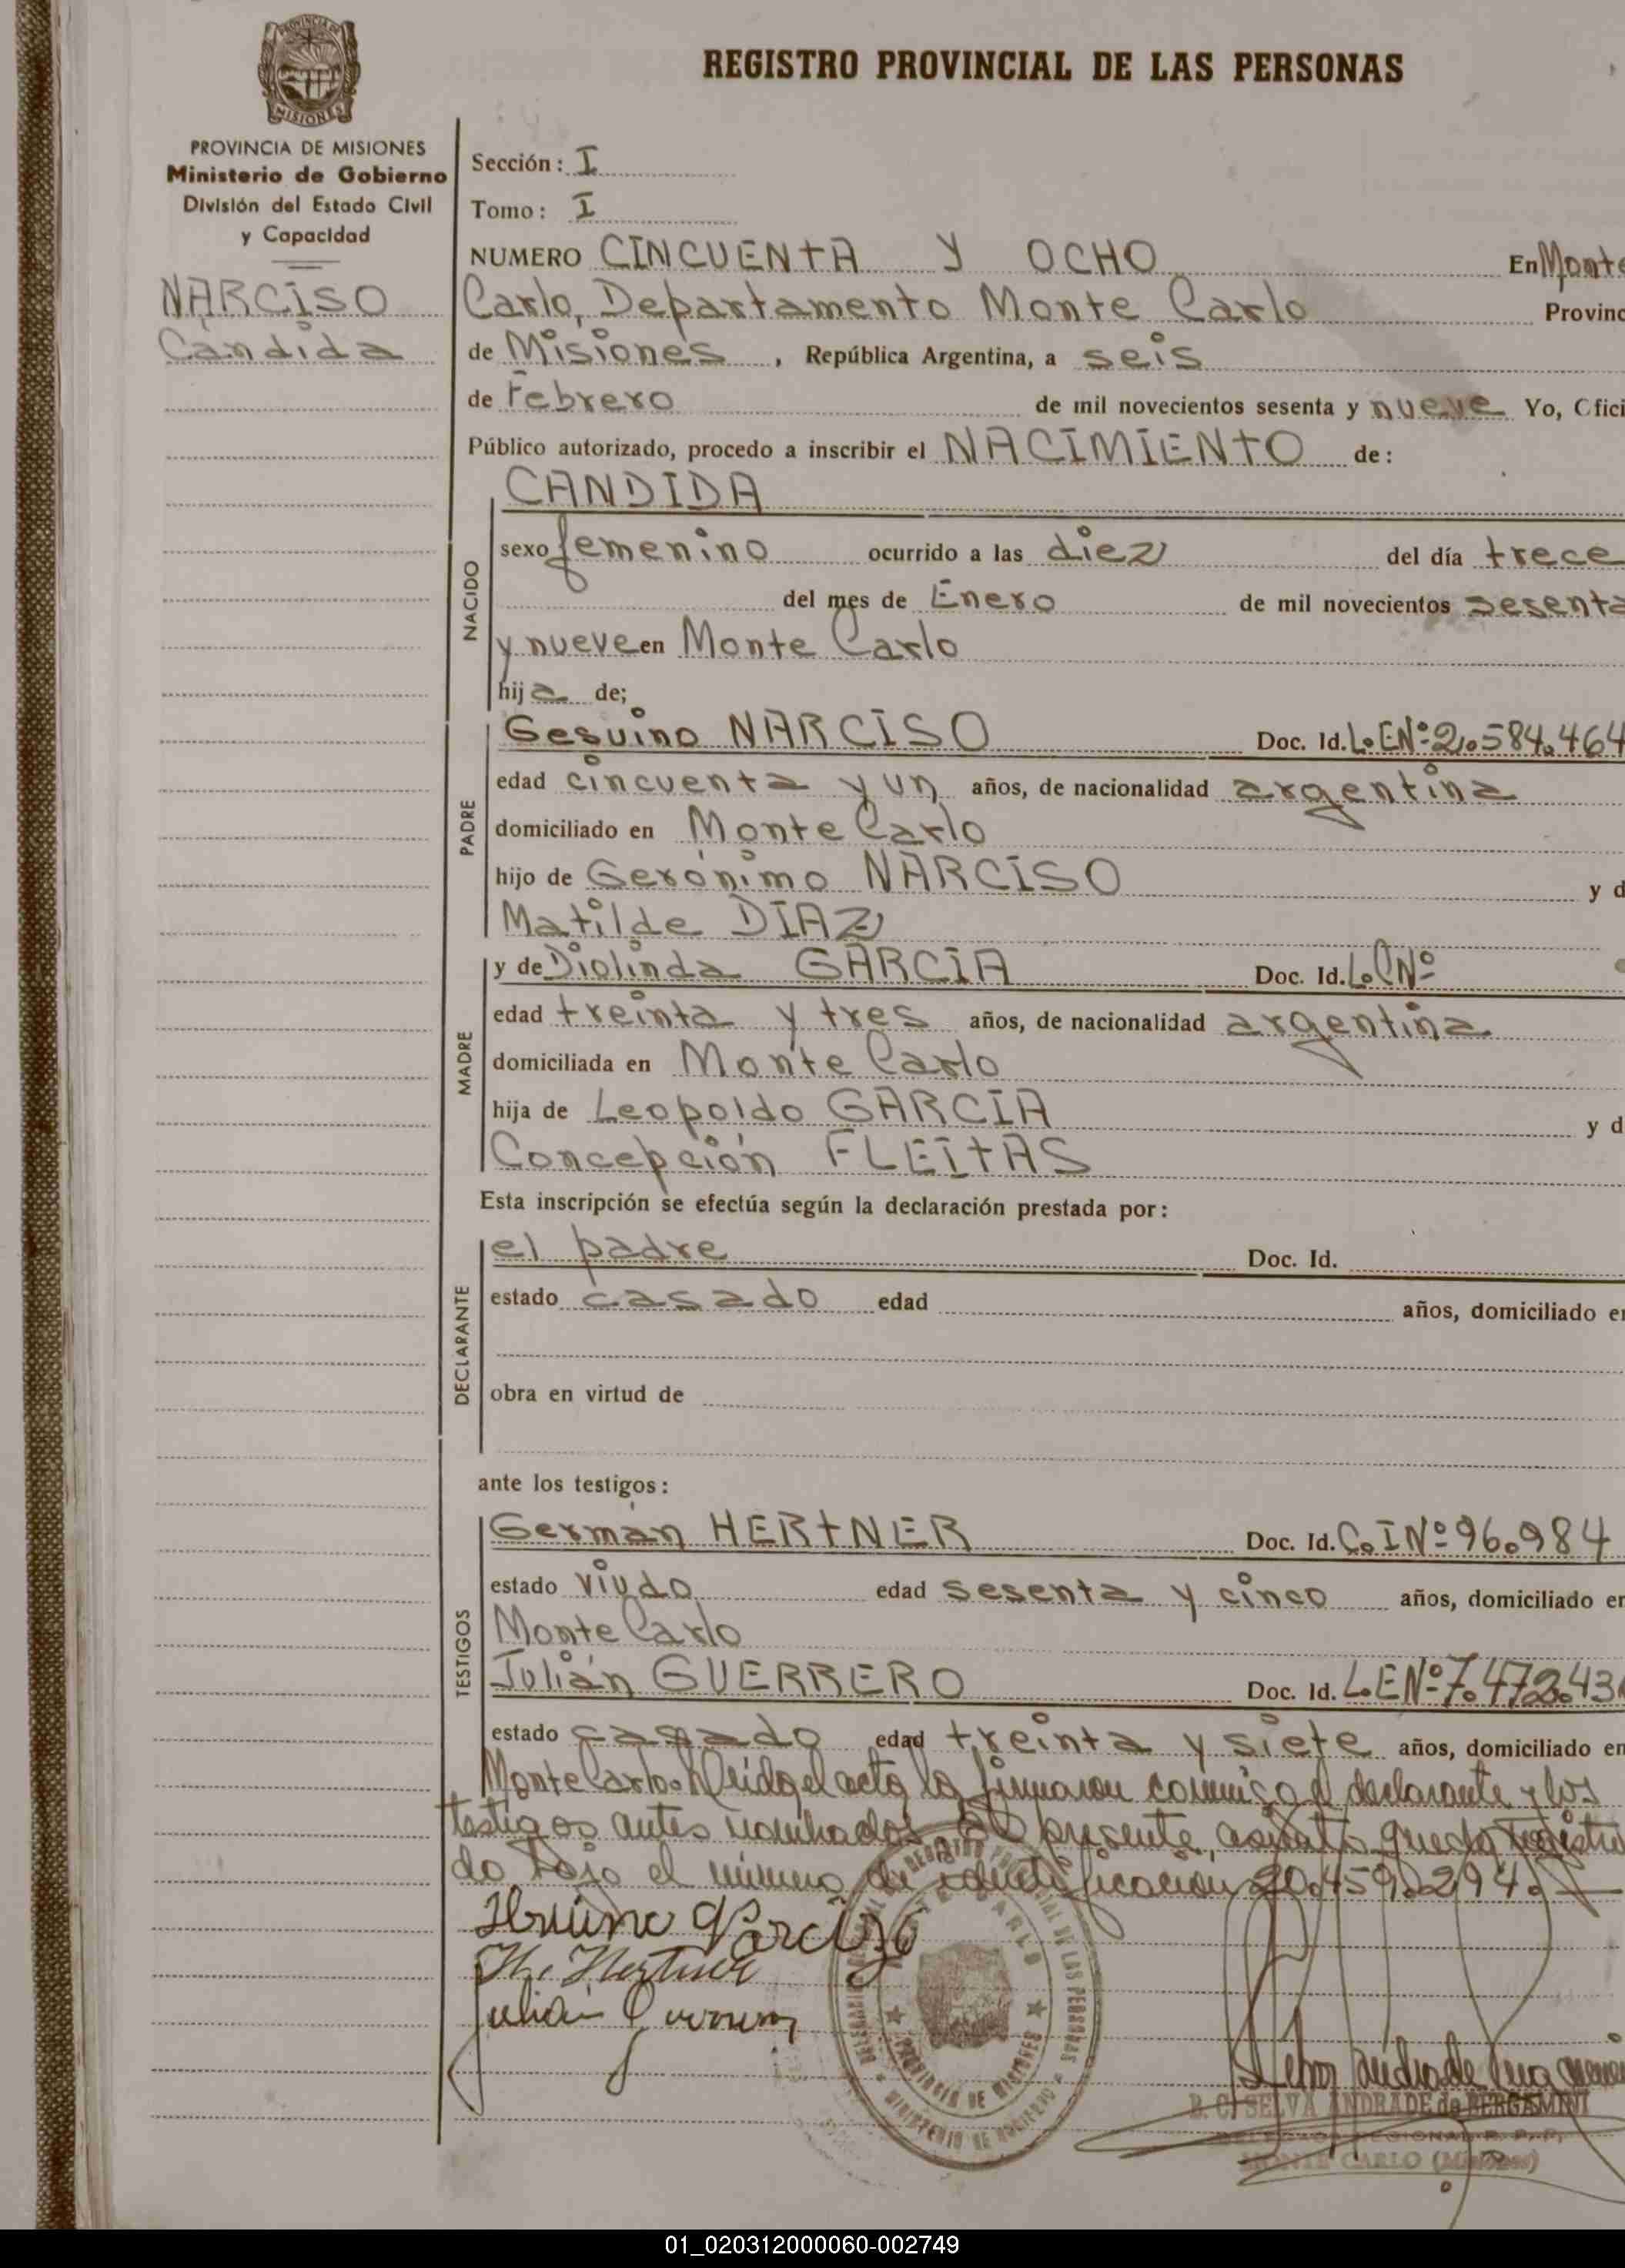 REGISTRO PROVINCIAL DE LAS PERSONAS
PROVINCIA DE MISIONES
Ministerio de Gobierno
División del Estado Civil
y Capacidad
NARCISO
Candida
Sección: I
Tomo: I
NUMERO CINCUENTA Y OCHO En Monte
Carlo, Departamento Monte Carlo Provinc
de Misiones, República Argentina, a seis
de Febrero de mil novecientos sesenta y nueve Yo, Ofici
Público autorizado, procedo a inscribir el NACIMIENTO de:
NACIDO
CANDIDA
sexo femenino ocurrido a las diez del día trece
del mes de Enero de mil novecientos sesenta
y nueve en Monte Carlo
hija de;
PADRE
Gesuino NARCISO Doc. Id. L.EN° 2.584.464
edad cincuenta y un años, de nacionalidad argentina
domiciliado en Monte Carlo
hijo de Gerónimo NARCISO y d
Matilde DIAZ
MADRE
y de Diolinda GARCIA Doc. Id. L.C N°
edad treinta y tres años, de nacionalidad argentina
domiciliada en Monte Carlo
hija de Leopoldo GARCIA y d
Concepción FLEITAS
Esta inscripción se efectúa según la declaración prestada por:
DECLARANTE
el padre Doc. Id.
estado casado edad años, domiciliado en
obra en virtud de
ante los testigos:
TESTIGOS
Germán HERTNER Doc. Id. C.I N° 96.984
estado viudo edad sesenta y cinco años, domiciliado en
Monte Carlo
Julián GUERRERO Doc. Id. L.EN° 7.472.43
estado casado edad treinta y siete años, domiciliado en
Monte Carlo. Leída el acta la firmaron conmigo el declarante y los
testigos antes nombrados. El presente asiento queda registra
do bajo el número de identificación 20.459.294.
Narcizo
H. Hertner
Julián
REGISTRO PROVINCIAL DE LAS PERSONAS
MONTE CARLO
PROVINCIA DE MISIONES
MINISTERIO DE GOBIERNO
Selva Andrade
B. C. SELVA ANDRADE de BERGAMINI
DELEGADA REGIONAL R. P. P.
MONTE CARLO (Misiones)
01_020312000060-002749